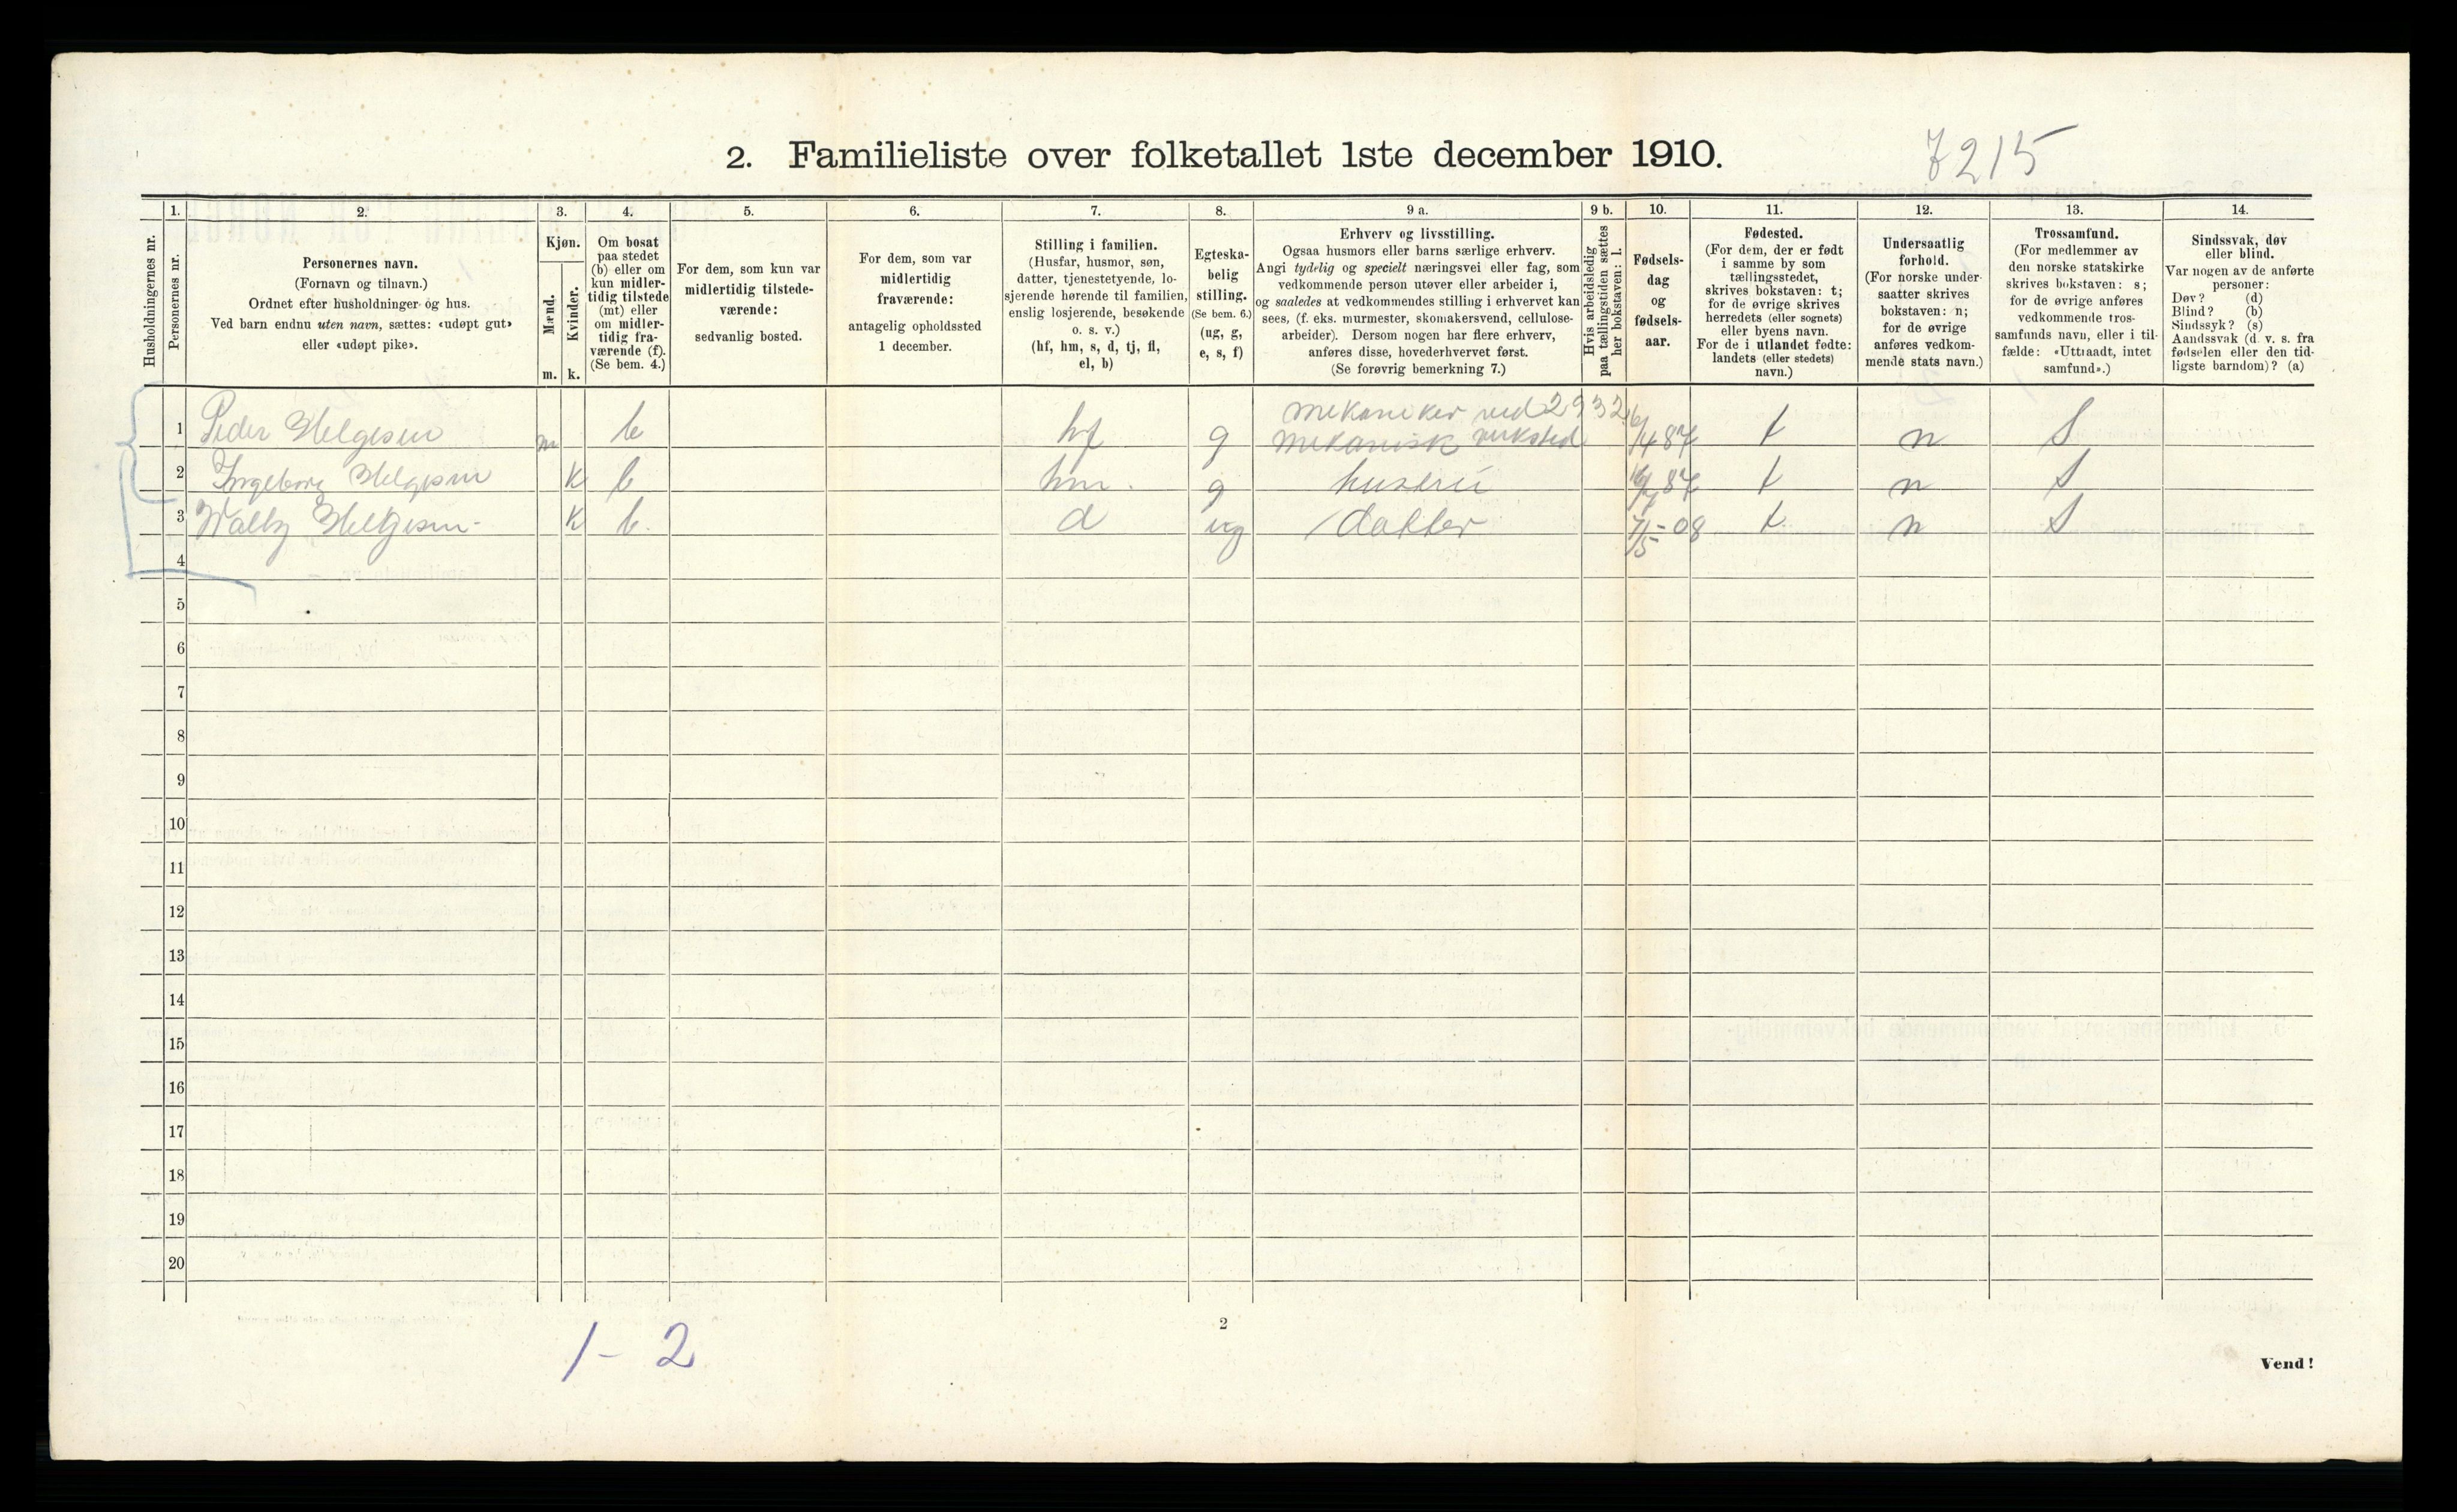 2. Familieliste over folketallet 1ste december 1910.
7215
Husholdningernes nr.
1.
Personernes nr.
2.
Personernes navn.
(Fornavn og tilnavn.)
Ordnet efter husholdninger og hus.
Ved barn endnu uten navn, sættes: «udøpt gut»
eller «udøpt pike».
3.
Kjøn.
Mænd.
m.
Kvinder.
k.
4.
Om bosat
paa stedet
(b) eller om
kun midler-
tidig tilstede
(mt) eller
om midler-
tidig fra-
værende (f).
(Se bem. 4.)
5.
For dem, som kun var
midlertidig tilstede-
værende:
sedvanlig bosted.
6.
For dem, som var
midlertidig
fraværende:
antagelig opholdssted
1 december.
7.
Stilling i familien.
(Husfar, husmor, søn,
datter, tjenestetyende, lo-
sjerende hørende til familien,
enslig losjerende, besøkende
o. s. v.)
(hf, hm, s, d, tj, fl,
el, b)
8.
Egteska-
belig
stilling.
(Se bem. 6.)
(ug, g,
e, s, f)
9 a.
Erhverv og livsstilling.
Ogsaa husmors eller barns særlige erhverv.
Angi tydelig og specielt næringsvei eller fag, som
vedkommende person utøver eller arbeider i,
og saaledes at vedkommendes stilling i erhvervet kan
sees, (f. eks. murmester, skomakersvend, cellulose-
arbeider). Dersom nogen har flere erhverv,
anføres disse, hovederhvervet først.
(Se forøvrig bemerkning 7.)
9 b.
Hvis arbeidsledig
paa tællingstiden sættes
her bokstaven: l.
10.
Fødsels-
dag
og
fødsels-
aar.
11.
Fødested.
(For dem, der er født
i samme by som
tællingsstedet,
skrives bokstaven: t;
for de øvrige skrives
herredets (eller sognets)
eller byens navn.
For de i utlandet fødte:
landets (eller stedets)
navn.)
12.
Undersaatlig
forhold.
(For norske under-
saatter skrives
bokstaven: n;
for de øvrige
anføres vedkom-
mende stats navn.)
13.
Trossamfund.
(For medlemmer av
den norske statskirke
skrives bokstaven: s;
for de øvrige anføres
vedkommende tros-
samfunds navn, eller i til-
fælde: «Uttraadt, intet
samfund».)
14.
Sindssvak, døv
eller blind.
Var nogen av de anførte
personer:
Døv? (d)
Blind? (b)
Sindssyk? (s)
Aandssvak (d. v. s. fra
fødselen eller den tid-
ligste barndom)? (a)
mekaniker ved 2932
1 Peder Helgesen m b hf g mekanisk verksted 6/4 87 t n S
2 Ingeborg Helgesen K b hm. g hustru 87 t n S
3 Walby Helgesen- K b. d ug datter 7/5-08 t n S
4
5
6
7
8
9
10
11
12
13
14
15
16
17
18
19
20
2
1-2
Vend!